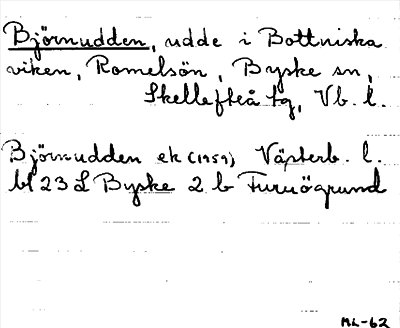 Björnudden, udde i Bottniska
viken, Romelsön, Byske sn,
Skellefteå tg, Vb. l.
Björnudden ek (1959) Västerb. l.
bl 23 L Byske 2 b Furuögrund
ML-62